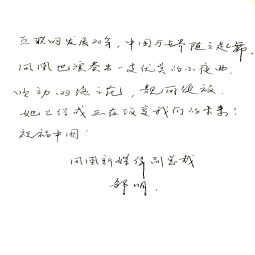 互联网发展20年，中国与世界随之起舞。
凤凰也演奏出一支优美的小夜曲。
心动的浪之花，靓丽绽放。
她已经或正在改变我们的未来！
祝福中国！
凤凰新媒体副总裁
邹明.